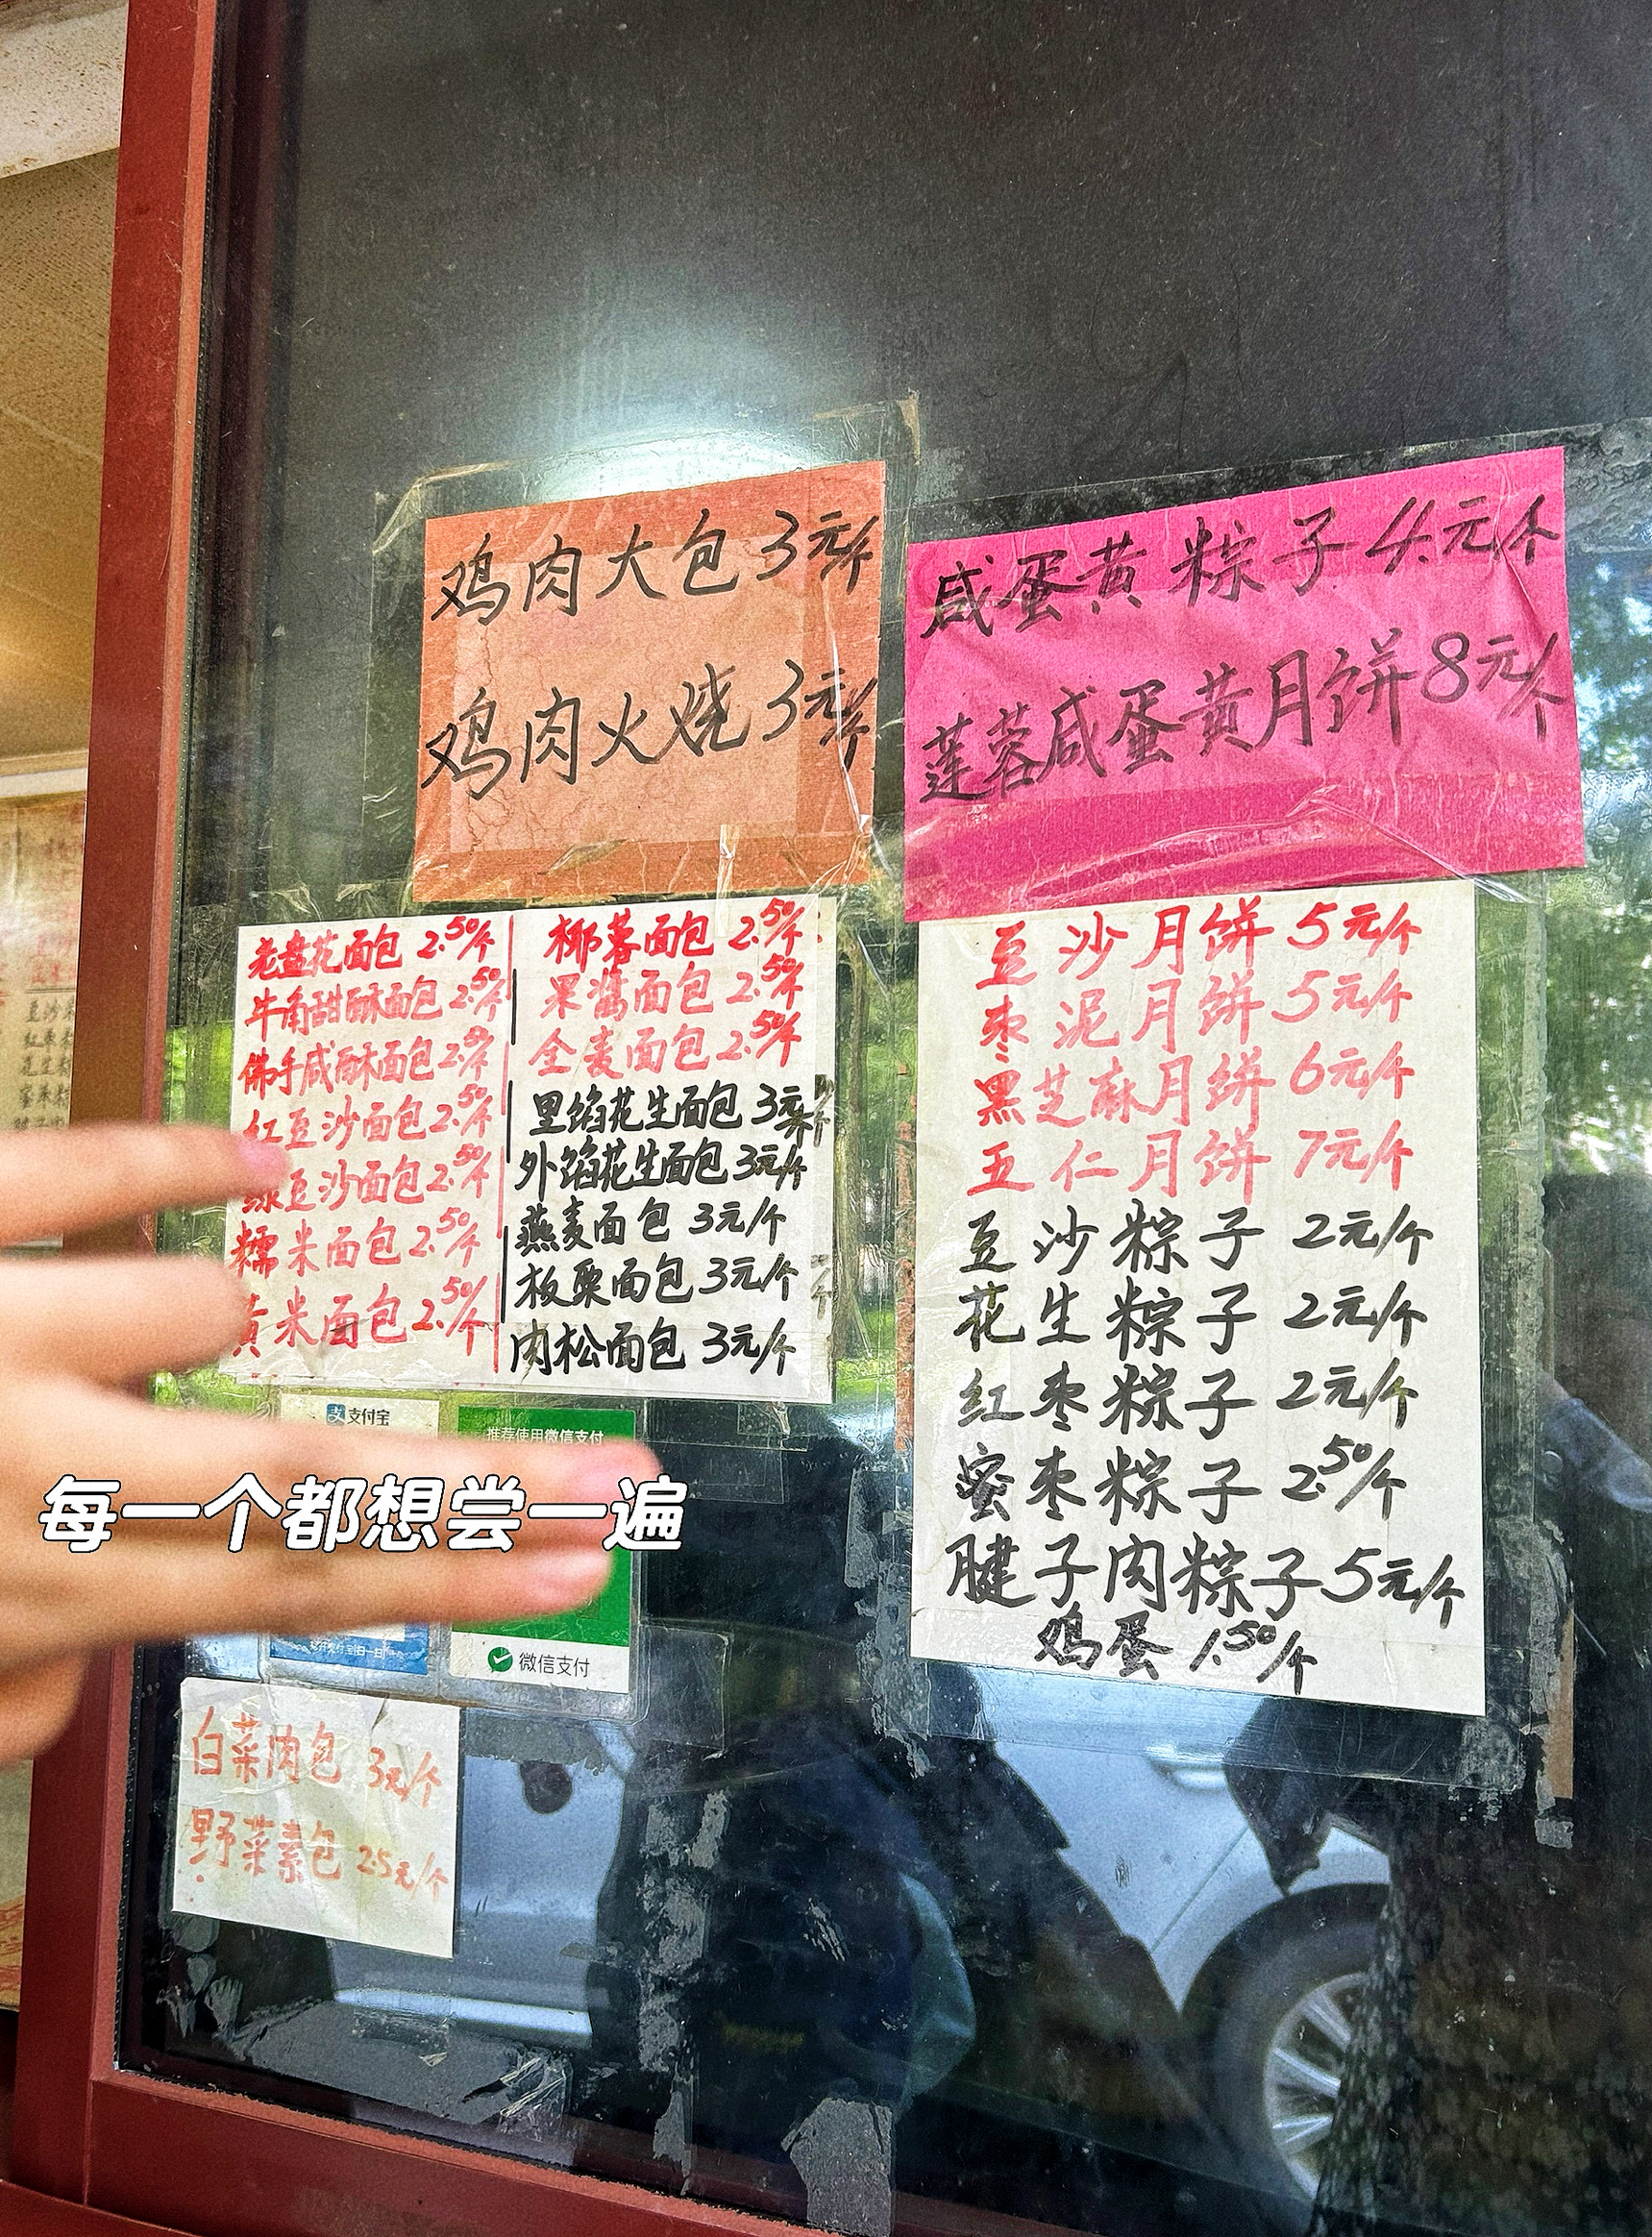 鸡肉大包3元/个
鸡肉火烧3元/个
咸蛋黄粽子4元/个
莲蓉咸蛋黄月饼8元/个
老盘花面包 2.50/个
牛角甜酥面包 2.50/个
佛手咸酥面包 2.50/个
红豆沙面包 2.50/个
绿豆沙面包 2.50/个
糯米面包 2.50/个
黄米面包 2.50/个
椰蓉面包 2.50/个
果酱面包 2.50/个
全麦面包 2.50/个
里馅花生面包 3元/个
外馅花生面包 3元/个
燕麦面包 3元/个
板栗面包 3元/个
肉松面包 3元/个
豆沙月饼 5元/个
枣泥月饼 5元/个
黑芝麻月饼 6元/个
五仁月饼 7元/个
豆沙粽子 2元/个
花生粽子 2元/个
红枣粽子 2元/个
蜜枣粽子 2.50/个
腱子肉粽子 5元/个
鸡蛋 1.50/个
支付宝
推荐使用微信支付
每一个都想尝一遍
微信支付
白菜肉包 3元/个
野菜素包 2.5元/个